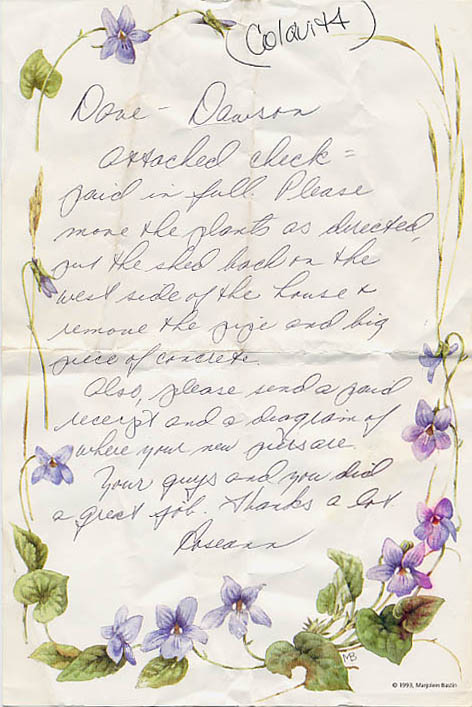 (Colavitt)
Dave - Dawson
attached check =
paid in full. Please
move the plants as directed,
put the shed back on the
west side of the house &
remove the pipe and big
piece of concrete.
Also, please send a paid
receipt and a diagram of
where your new piers are.
Your guys and you did
a great job. Thanks a lot.
Roseann
MB
© 1993, Marjolein Bastin